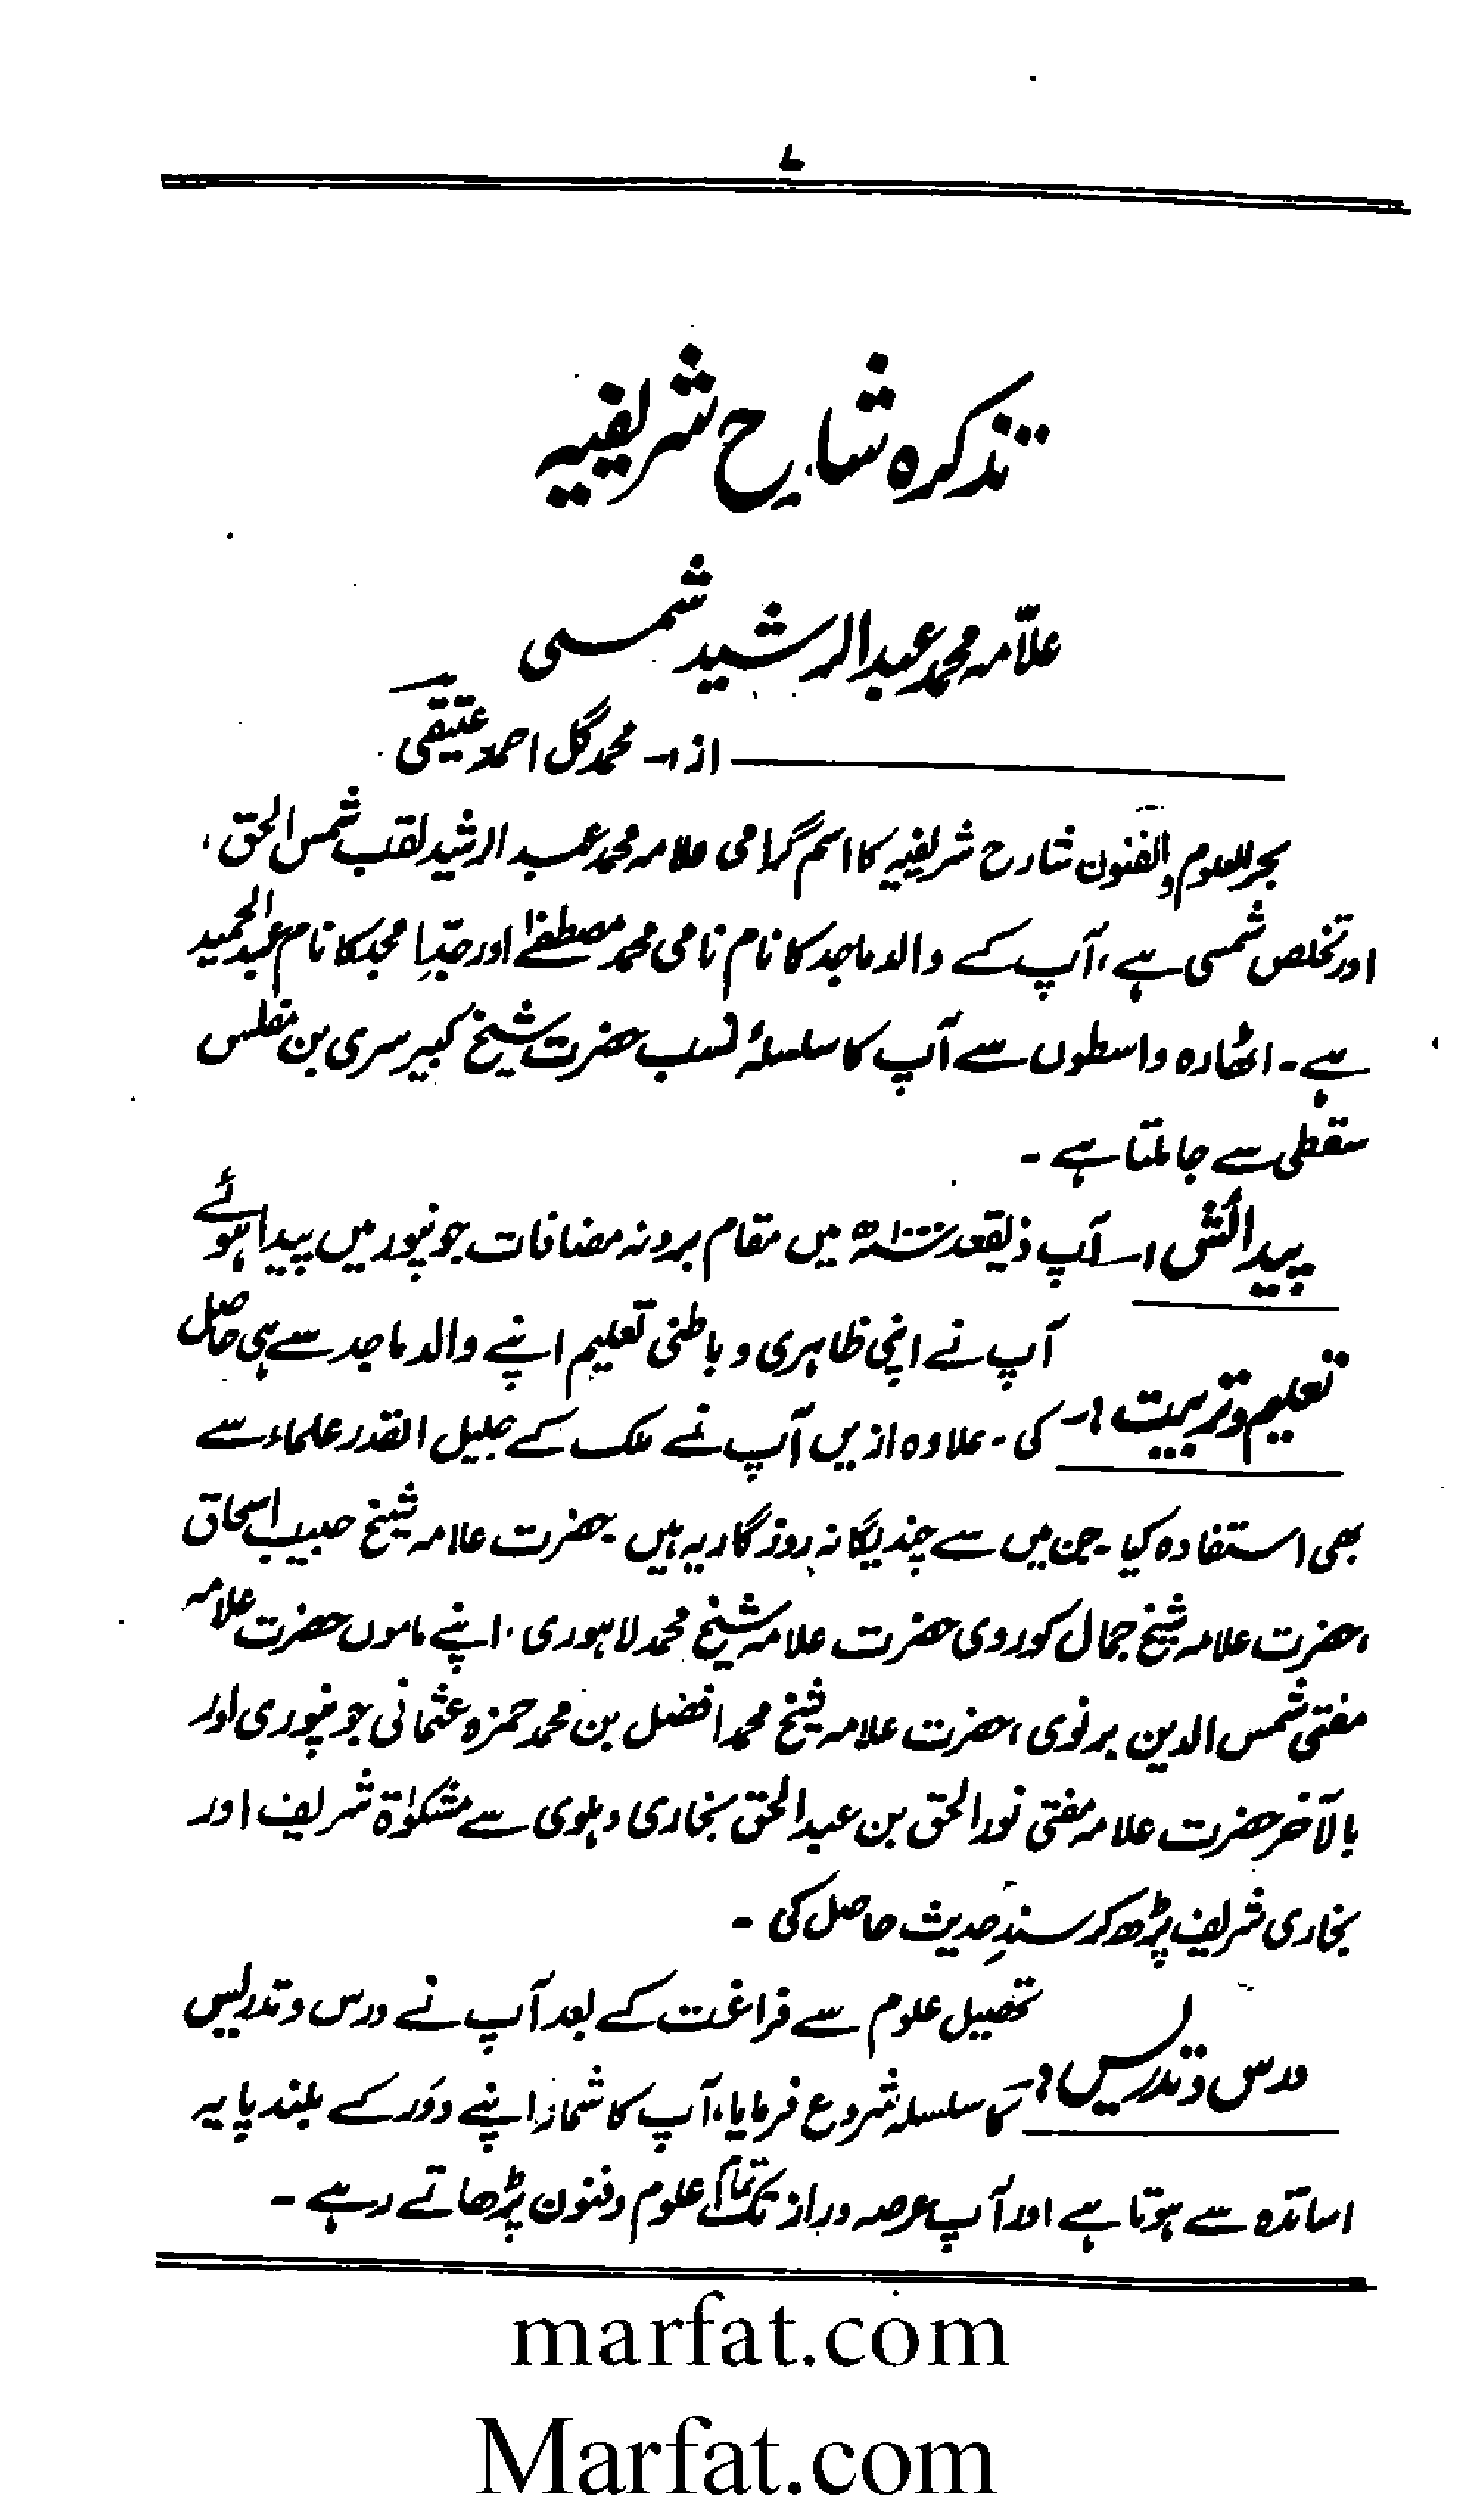 ۷
تذکرہ شارح شریفیہ
علّامہ محمد عبدالرشید شمسی
از :- محمد گل احمد عتیقی
بحر العلوم والفنون شارح شریفیہ کا اسم گرامی علامہ محمد عبد الرشید لقب شمس الحق ،
اور تخلص شمسی ہے ، آپ کے والد ماجد کا نام نامی محمد مصطفےٰ اور جدِّ امجد کا نام عبدالحمید
ہے ۔ اٹھارہ واسطوں سے آپ کا سلسلۂ نسب حضرت شیخ کبیر سری بن مفلس
سقطی سے جا ملتا ہے ۔
پیدائش :۔ آپ ذیقعد ۱۰۰۰ھ میں مقام برونہ مضافات جونپور میں پیدا ہوئے
آپ نے اپنی ظاہری و باطنی تعلیم اپنے والد ماجد سے ہی حاصل
تعلیم و تربیت :۔ کی ۔ علاوہ ازیں آپ نے ملک کے جلیل القدر علماء سے
بھی استفادہ کیا ۔ جن میں سے چند یگانہ روزگار یہ ہیں ۔ حضرت علامہ شیخ حبیب اسحاق
، حضرت علامہ شیخ جمال کوروی حضرت علامہ شیخ محمد لاہوری ، اپنے ماموں حضرت علامہ
مفتی شمس الدین برنوی ، حضرت علامہ شیخ محمد افضل بن محمد حمزہ عثمانی جونپوری اور
بالآخر حضرت علامہ مفتی نور الحق بن عبدالحق بخاری دہلوی سے مشکوٰۃ شریف اور
بخاری شریف پڑھ کر سندِ حدیث حاصل کی ۔
تحصیل علوم سے فراغت کے بعد آپ نے درس و تدریس
درس و تدریس :۔ کا سلسلہ شروع فرمایا ، آپ کا شمار اپنے دَور کے بلند پایہ
اساتذہ سے ہوتا ہے اور آپ عرصہ دراز تک تمام علوم وفنون پڑھاتے رہے ۔
marfat.com
Marfat.com